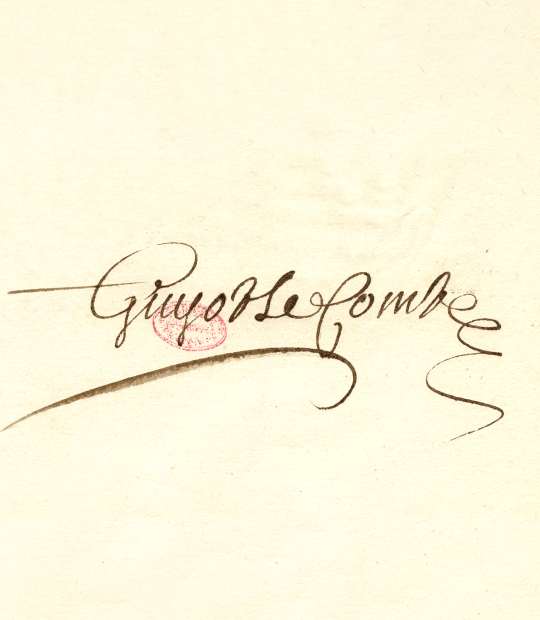 Guyot le Comte